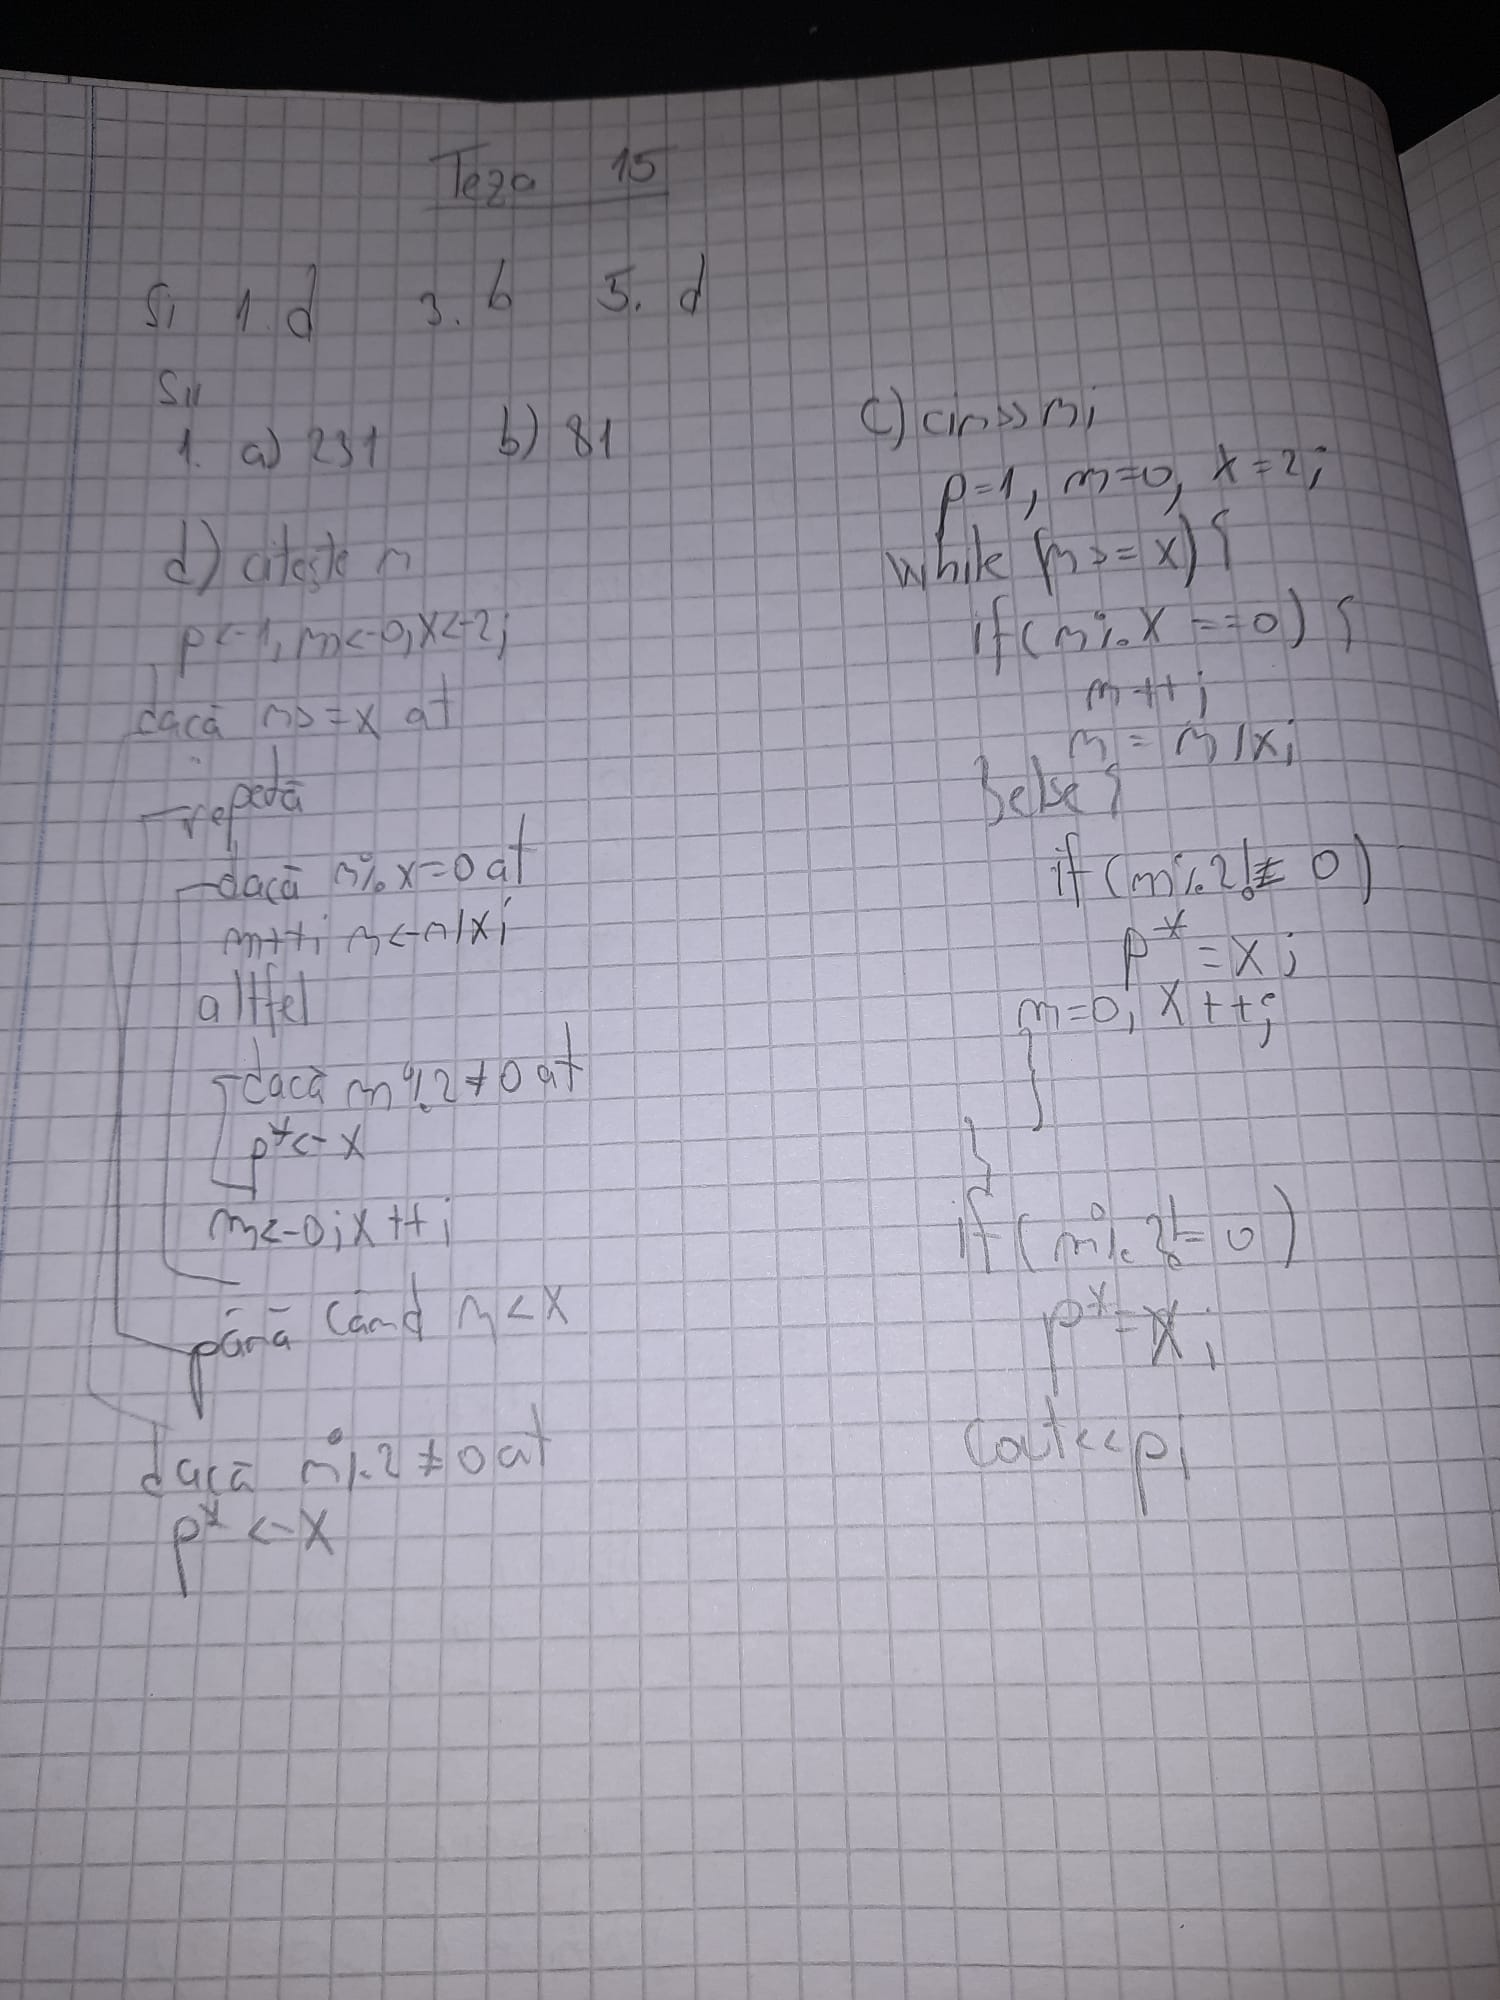 Teza 15
SI 1. d 3. b 5. d
SII
1. a) 231 b) 81
d) citește n
p<-1, m<-0, x<-2;
dacă n>=x at
repetă
dacă n%x=0 at
m++; n<-n/x;
altfel
dacă m%2≠0 at
p*<-x
m<-0; x++;
până când n<x
dacă m%2≠0 at
p*<-x
c) cin>>n;
p=1, m=0, x=2;
while (n>=x) {
if(n%x==0) {
m++;
n=n/x;
}else{
if(m%2!=0)
p*=x;
m=0, x++;
}
}
if(m%2!=0)
p*=x;
cout<<p;